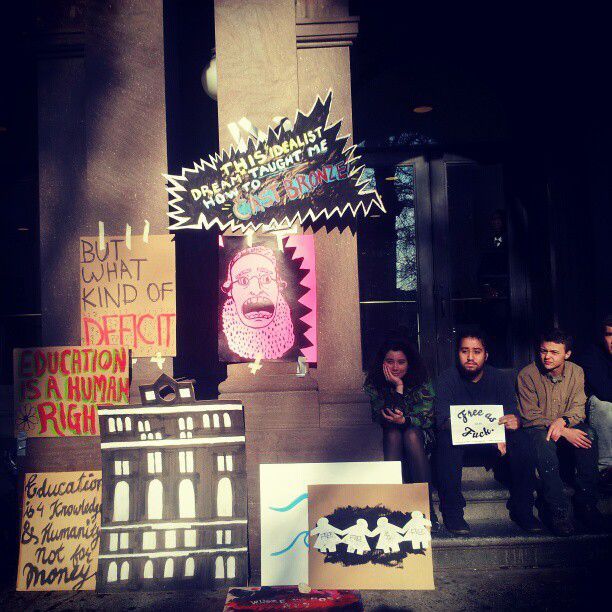 THIS IDEALIST
DREAM TAUGHT ME
HOW TO
CAST BRONZE
BUT
WHAT
KIND OF
DEFICIT
EDUCATION
IS A HUMAN
RIGH
Education
is 4 Knowledge
& Humanity
not for
Money
Free as
Fuck.
FREE
FREE